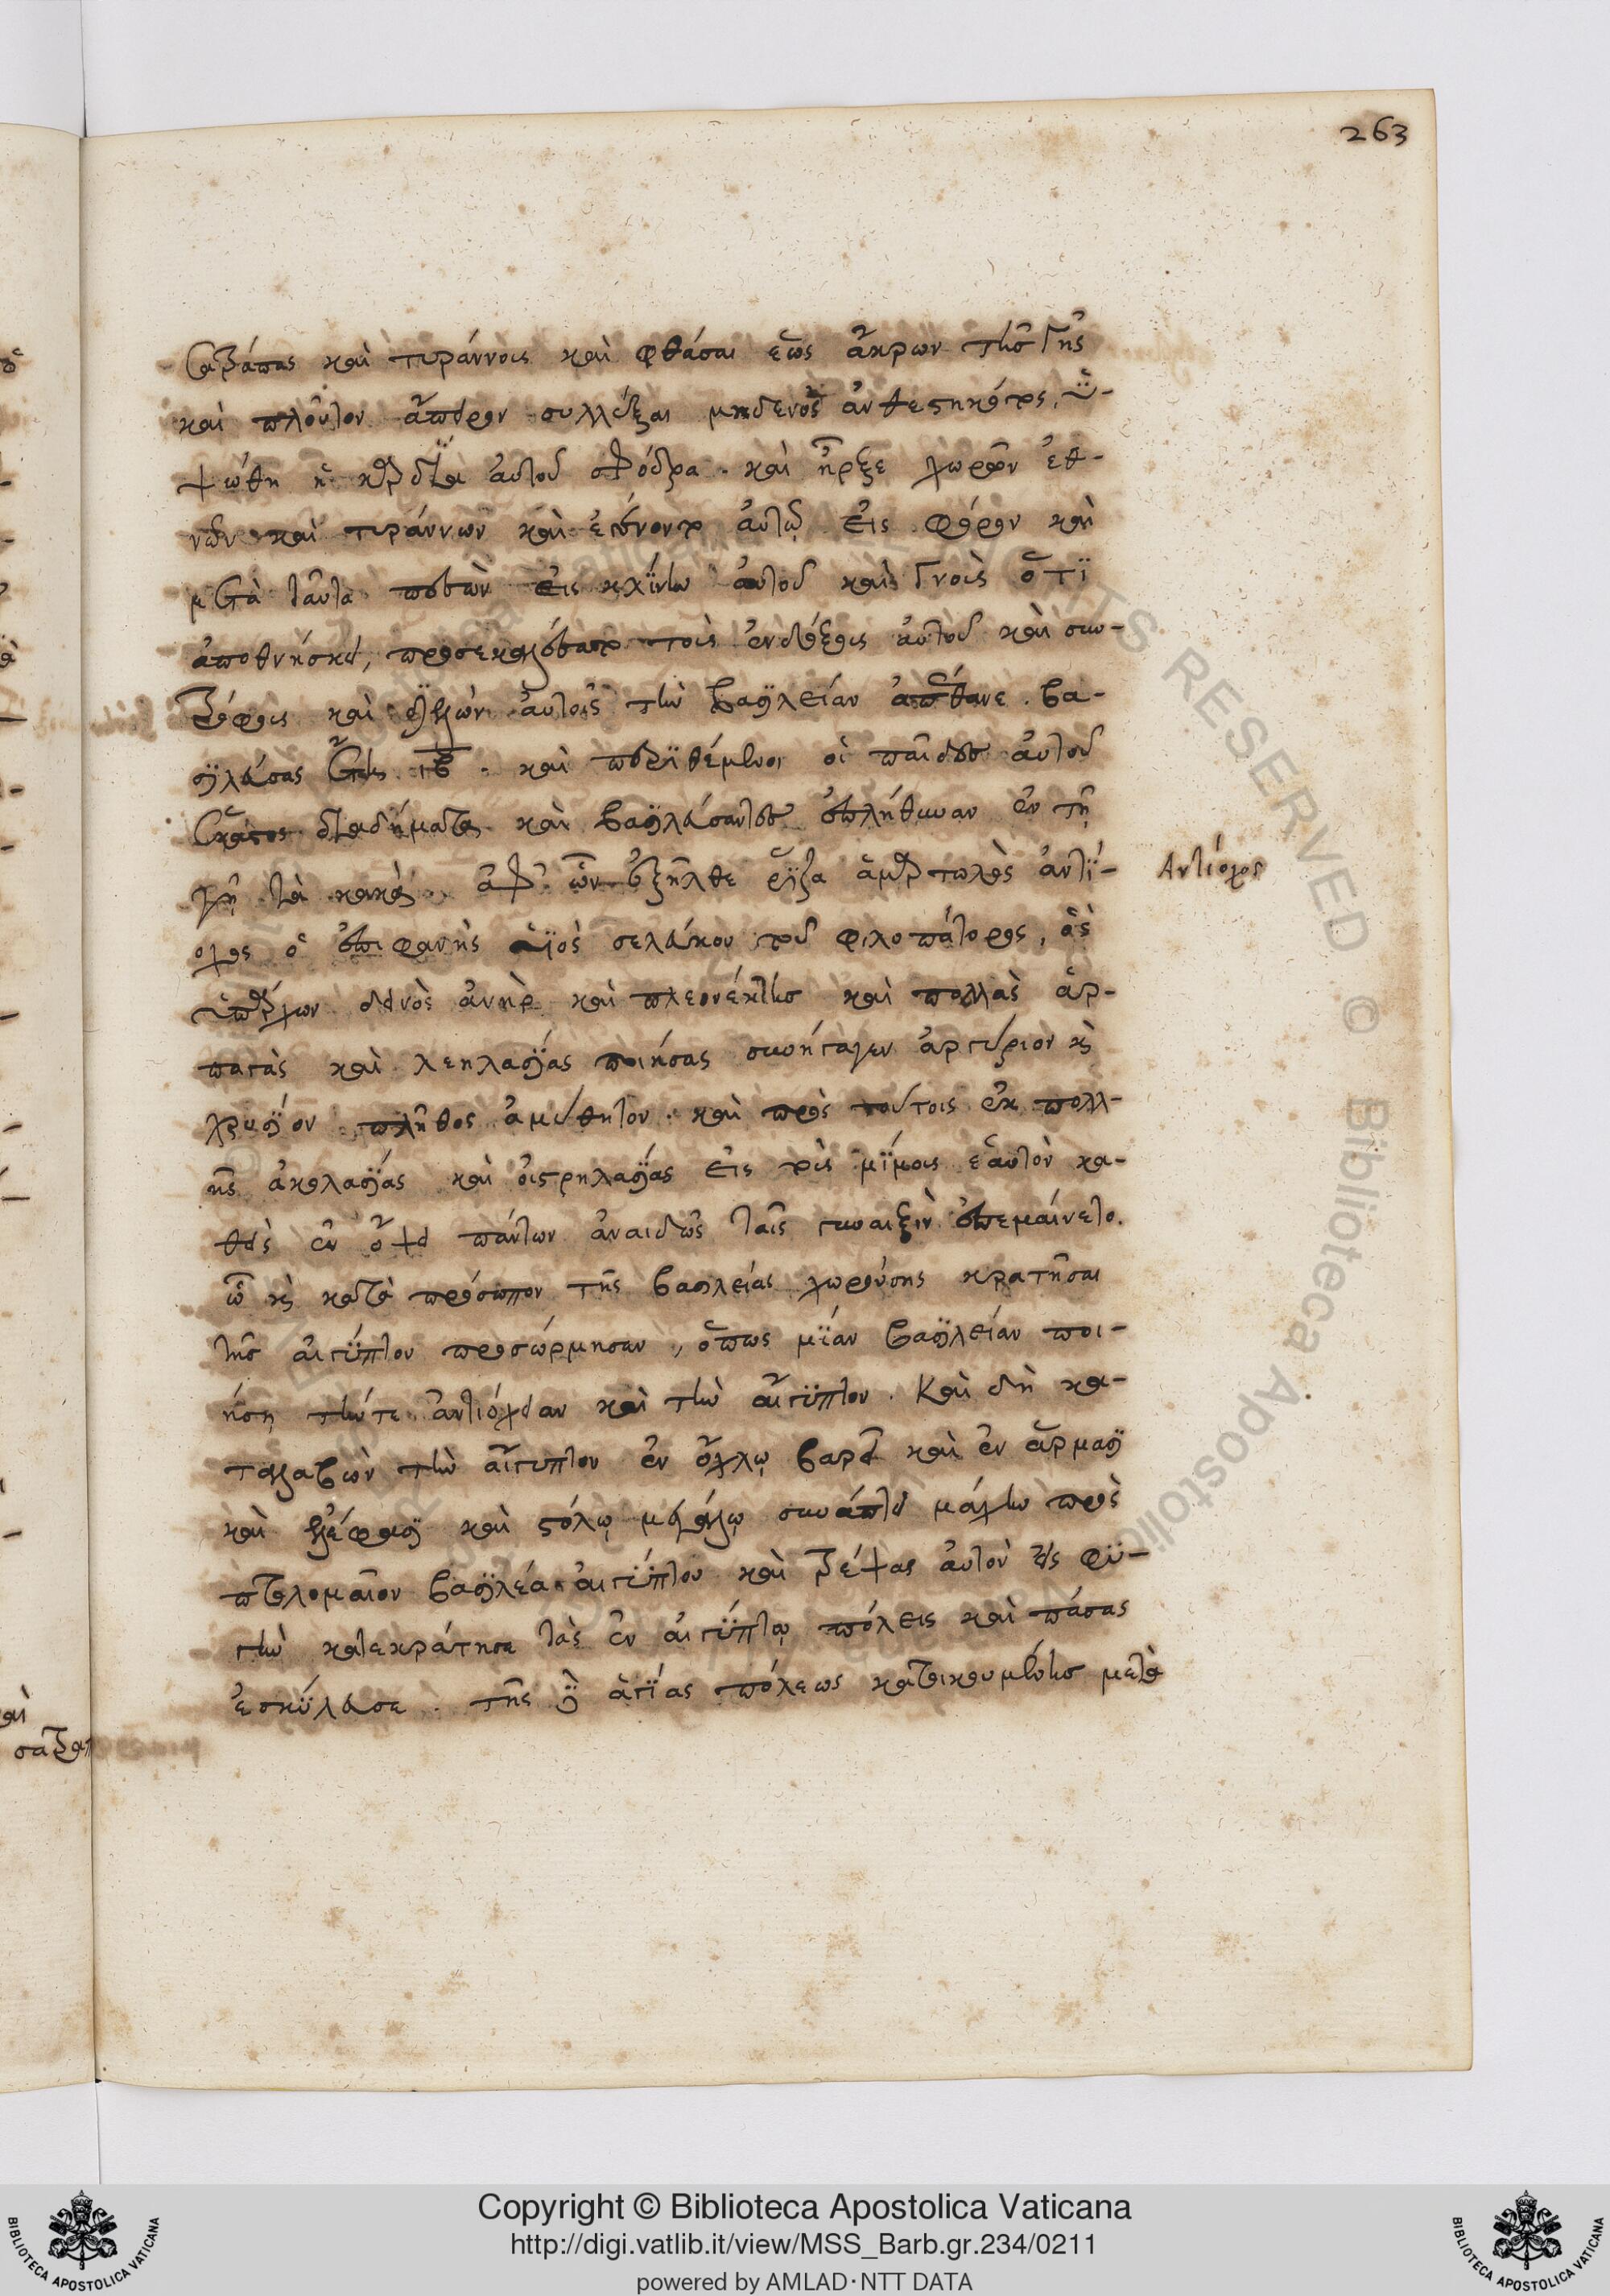 263
σατράπας καὶ τυράννους καὶ φθάσαι ἕως ἄκρων τῆς γῆς
καὶ πλοῦτον ἄπειρον συλλέξαι μηδενὸς ἀνθεστηκότος, ὑ-
ψώθη ἡ καρδία αὐτοῦ σφόδρα. καὶ ἦρξε χωρῶν ἐθ-
νῶν καὶ τυράννων καὶ ἐγένοντο αὐτῷ εἰς φόρον καὶ
μετὰ ταῦτα πεσὼν εἰς κλίνην αὐτοῦ καὶ γνοὺς ὅτι
ἀποθνήσκει, προσεκαλέσατο τοὺς ἐνδόξους αὐτοῦ καὶ συν-
τρόφους καὶ διελὼν αὐτοῖς τὴν βασιλείαν ἀπέθανε. βα-
σιλεύσας ἔτη ιβ. καὶ περιθέμενοι οἱ παῖδες αὐτοῦ
ἕκαστος διαδήματα καὶ βασιλεύσαντες ἐπλήθυναν ἐν τῇ
γῇ τὰ κακά. ἀφ' ὧν ἐξῆλθε ῥίζα ἁμαρτωλὸς ἀντί-
οχος ὁ ἐπιφανὴς υἱὸς σελεύκου τοῦ φιλοπάτορος, ὃς
ὑπάρχων δεινὸς ἀνὴρ καὶ πλεονέκτης καὶ πολλὰς ἁρ-
παγὰς καὶ λεηλασίας ποιήσας συνήγαγεν ἀργύριον κὶ
χρυσίον πλῆθος ἀμύθητον. καὶ πρὸς τούτοις ἐκ πολλ-
ῆς ἀκολασίας καὶ οἰστρηλασίας εἰς τοὺς μίμους ἑαυτὸν κα-
θεὶς ἐν ὄψει πάντων ἀναιδῶς ταῖς γυναιξὶν ἐπεμαίνετο.
ᾧ κὶ κατὰ πρόσωπον τῆς βασιλείας χωρούσης κρατῆσαι
τῆς αἰγύπτου προσώρμησεν, ὅπως μίαν βασιλείαν ποι-
ήσῃ τήντε ἀντιόχειαν καὶ τὴν αἴγυπτον. Καὶ δὴ κα-
ταλαβὼν τὴν αἴγυπτον ἐν ὄχλῳ βαρεῖ καὶ ἐν ἅρμασι
καὶ ἐλέφασι καὶ στόλῳ μεγάλῳ συνάπτει μάχην πρὸς
πτολομαῖον βασιλέα αἰγύπτου καὶ τρέψας αὐτὸν εἰς φυ-
γὴν κατεκράτησε τὰς ἐν αἰγύπτῳ πόλεις καὶ πάσας
ἐσκύλευσε. τῆς δὲ ἁγίας πόλεως κατοικουμένης μετὰ
Αντίοχος
Copyright © Biblioteca Apostolica Vaticana
http://digi.vatlib.it/view/MSS_Barb.gr.234/0211
powered by AMLAD·NTT DATA
BIBLIOTECA APOSTOLICA VATICANA
BIBLIOTECA APOSTOLICA VATICANA